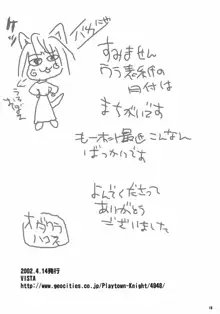 すみません
ウラ表紙の
日付は
まちがいです
もーホント最近こんなん
ばっかいです
よんでくださって
ありがとう
ございました
2002.4.14発行
VISTA
http://www.geocities.co.jp/Playtown-Knight/4948/